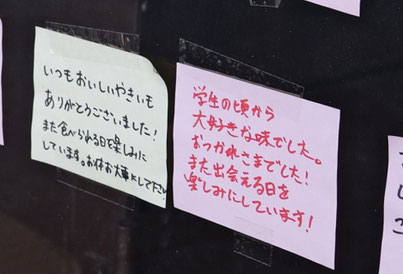 いつもおいしいやきいも
ありがとうございました!
また食べられる日を楽しみに
しています。お体お大事にして下さい
学生の頃から
大好きな味でした。
おつかれさまでした!
また出会える日を
楽しみにしています!